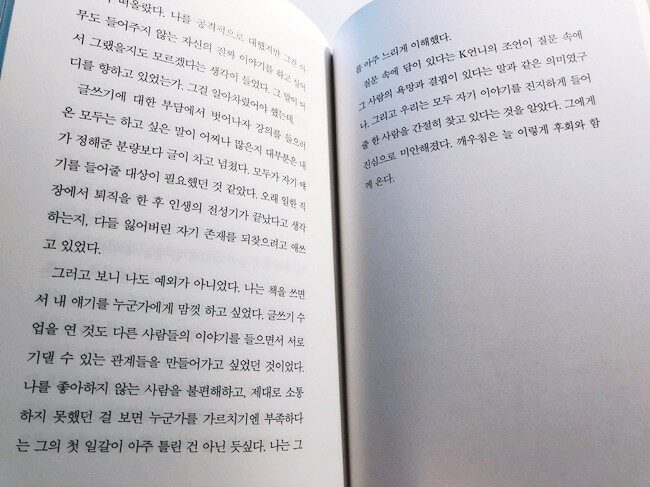 떠올랐다. 나를 공격적으로 대했지만 그건 아
무도 들어주지 않는 자신의 진짜 이야기를 하고 싶어
서 그랬을지도 모르겠다는 생각이 들었다. 그 말이 어
디를 향하고 있었는가, 그걸 알아차렸어야 했는데.
글쓰기에 대한 부담에서 벗어나자 강의를 들으러
온 모두는 하고 싶은 말이 어찌나 많은지 대부분은 내
가 정해준 분량보다 글이 차고 넘쳤다. 모두가 자기 얘
기를 들어줄 대상이 필요했던 것 같았다. 오래 일한 직
장에서 퇴직을 한 후 인생의 전성기가 끝났다고 생각
하는지, 다들 잃어버린 자기 존재를 되찾으려고 애쓰
고 있었다.
그러고 보니 나도 예외가 아니었다. 나는 책을 쓰면
서 내 얘기를 누군가에게 맘껏 하고 싶었다. 글쓰기 수
업을 연 것도 다른 사람들의 이야기를 들으면서 서로
기댈 수 있는 관계들을 만들어가고 싶었던 것이었다.
나를 좋아하지 않는 사람을 불편해하고, 제대로 소통
하지 못했던 걸 보면 누군가를 가르치기엔 부족하다
는 그의 첫 일갈이 아주 틀린 건 아닌 듯싶다. 나는 그
를 아주 느리게 이해했다.
질문 속에 답이 있다는 K언니의 조언이 질문 속에
그 사람의 욕망과 결핍이 있다는 말과 같은 의미였구
나. 그리고 우리는 모두 자기 이야기를 진지하게 들어
줄 한 사람을 간절히 찾고 있다는 것을 알았다. 그에게
진심으로 미안해졌다. 깨우침은 늘 이렇게 후회와 함
께 온다.